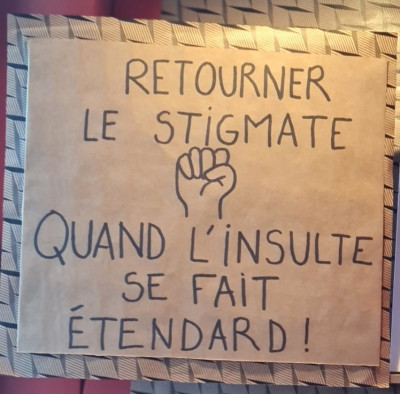 RETOURNER
LE STIGMATE
QUAND L'INSULTE
SE FAIT
ÉTENDARD !